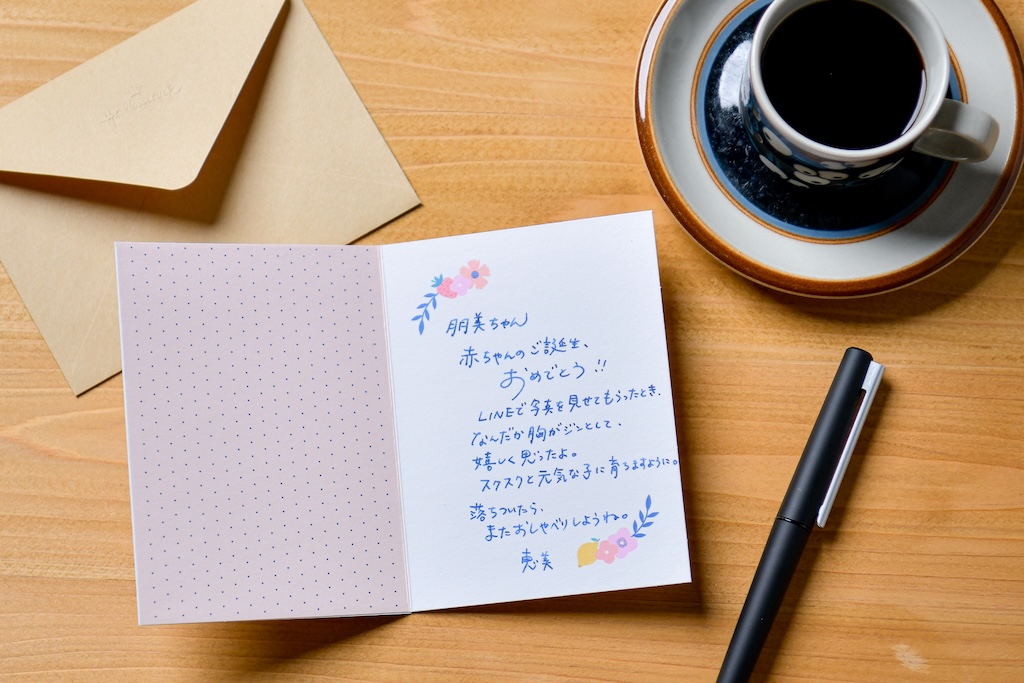 Hallmark
朋美ちゃん
赤ちゃんのご誕生、
おめでとう!!
LINEで写真を見せてもらったとき、
なんだか胸がジンとして、
嬉しく思ったよ。
スクスクと元気な子に育ちますように。
落ちついたら、
またおしゃべりしようね。
恵美